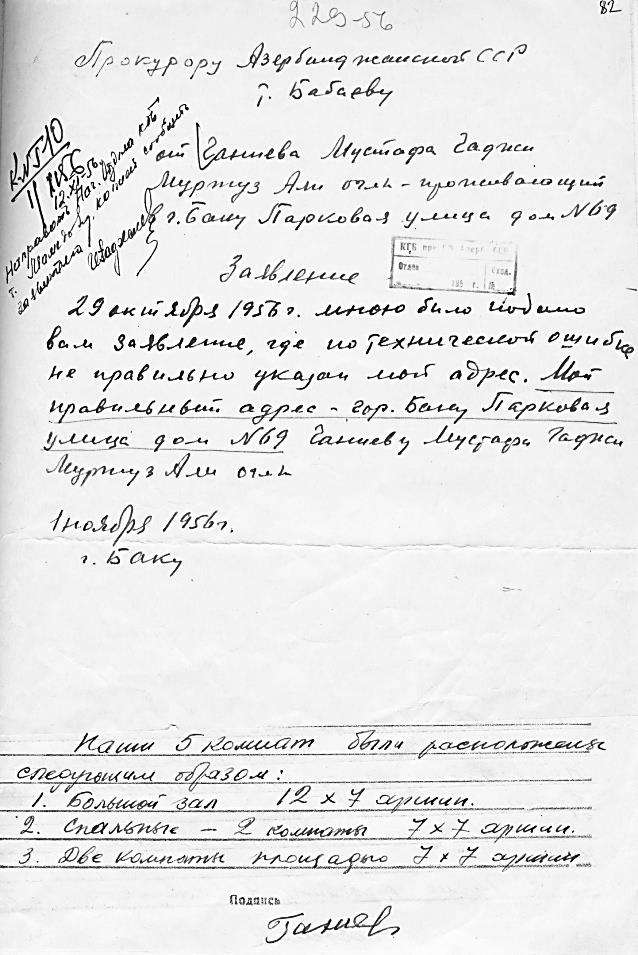 229-56
82
Прокурору Азербайджанской ССР
т. Бабаеву
КМ510
12.XI.56
Направить Нач.
заявителя
от Ганиева Мустафа Гаджи
Муртуз Али оглы - проживающий
в г. Баку Парковая улица дом N69
КГБ при СМ Азерб. ССР
Отдел
Вход.
195 г. №
Заявление
29 октября 1956 г. мною было подано
вам заявление, где по технической ошибке
не правильно указан мой адрес. Мой
правильный адрес - гор. Баку Парковая
улица дом N69 Ганиеву Мустафа Гаджи
Муртуз Али оглы
1 ноября 1956 г.
г. Баку
Наши 5 комнат были расположены
следующим образом:
1. Большой зал 12 х 7 аршин.
2. Спальные - 2 комнаты 7 х 7 аршин.
3. Две комнаты площадью 7 х 7 аршин
Подпись
Ганиев